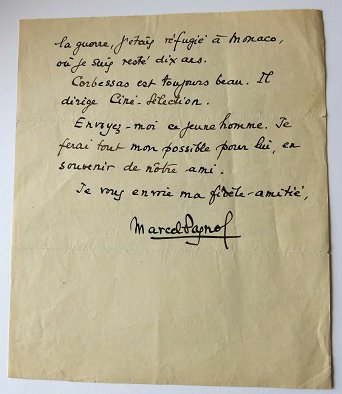 la guerre, j'étais réfugié à Monaco,
où je suis resté dix ans.
Corbessas est toujours beau. Il
dirige Ciné-Sélection.
Envoyez-moi ce jeune homme. Je
ferai tout mon possible pour lui, en
souvenir de nôtre ami.
Je vous envoie ma fidèle amitié,
Marcel Pagnol